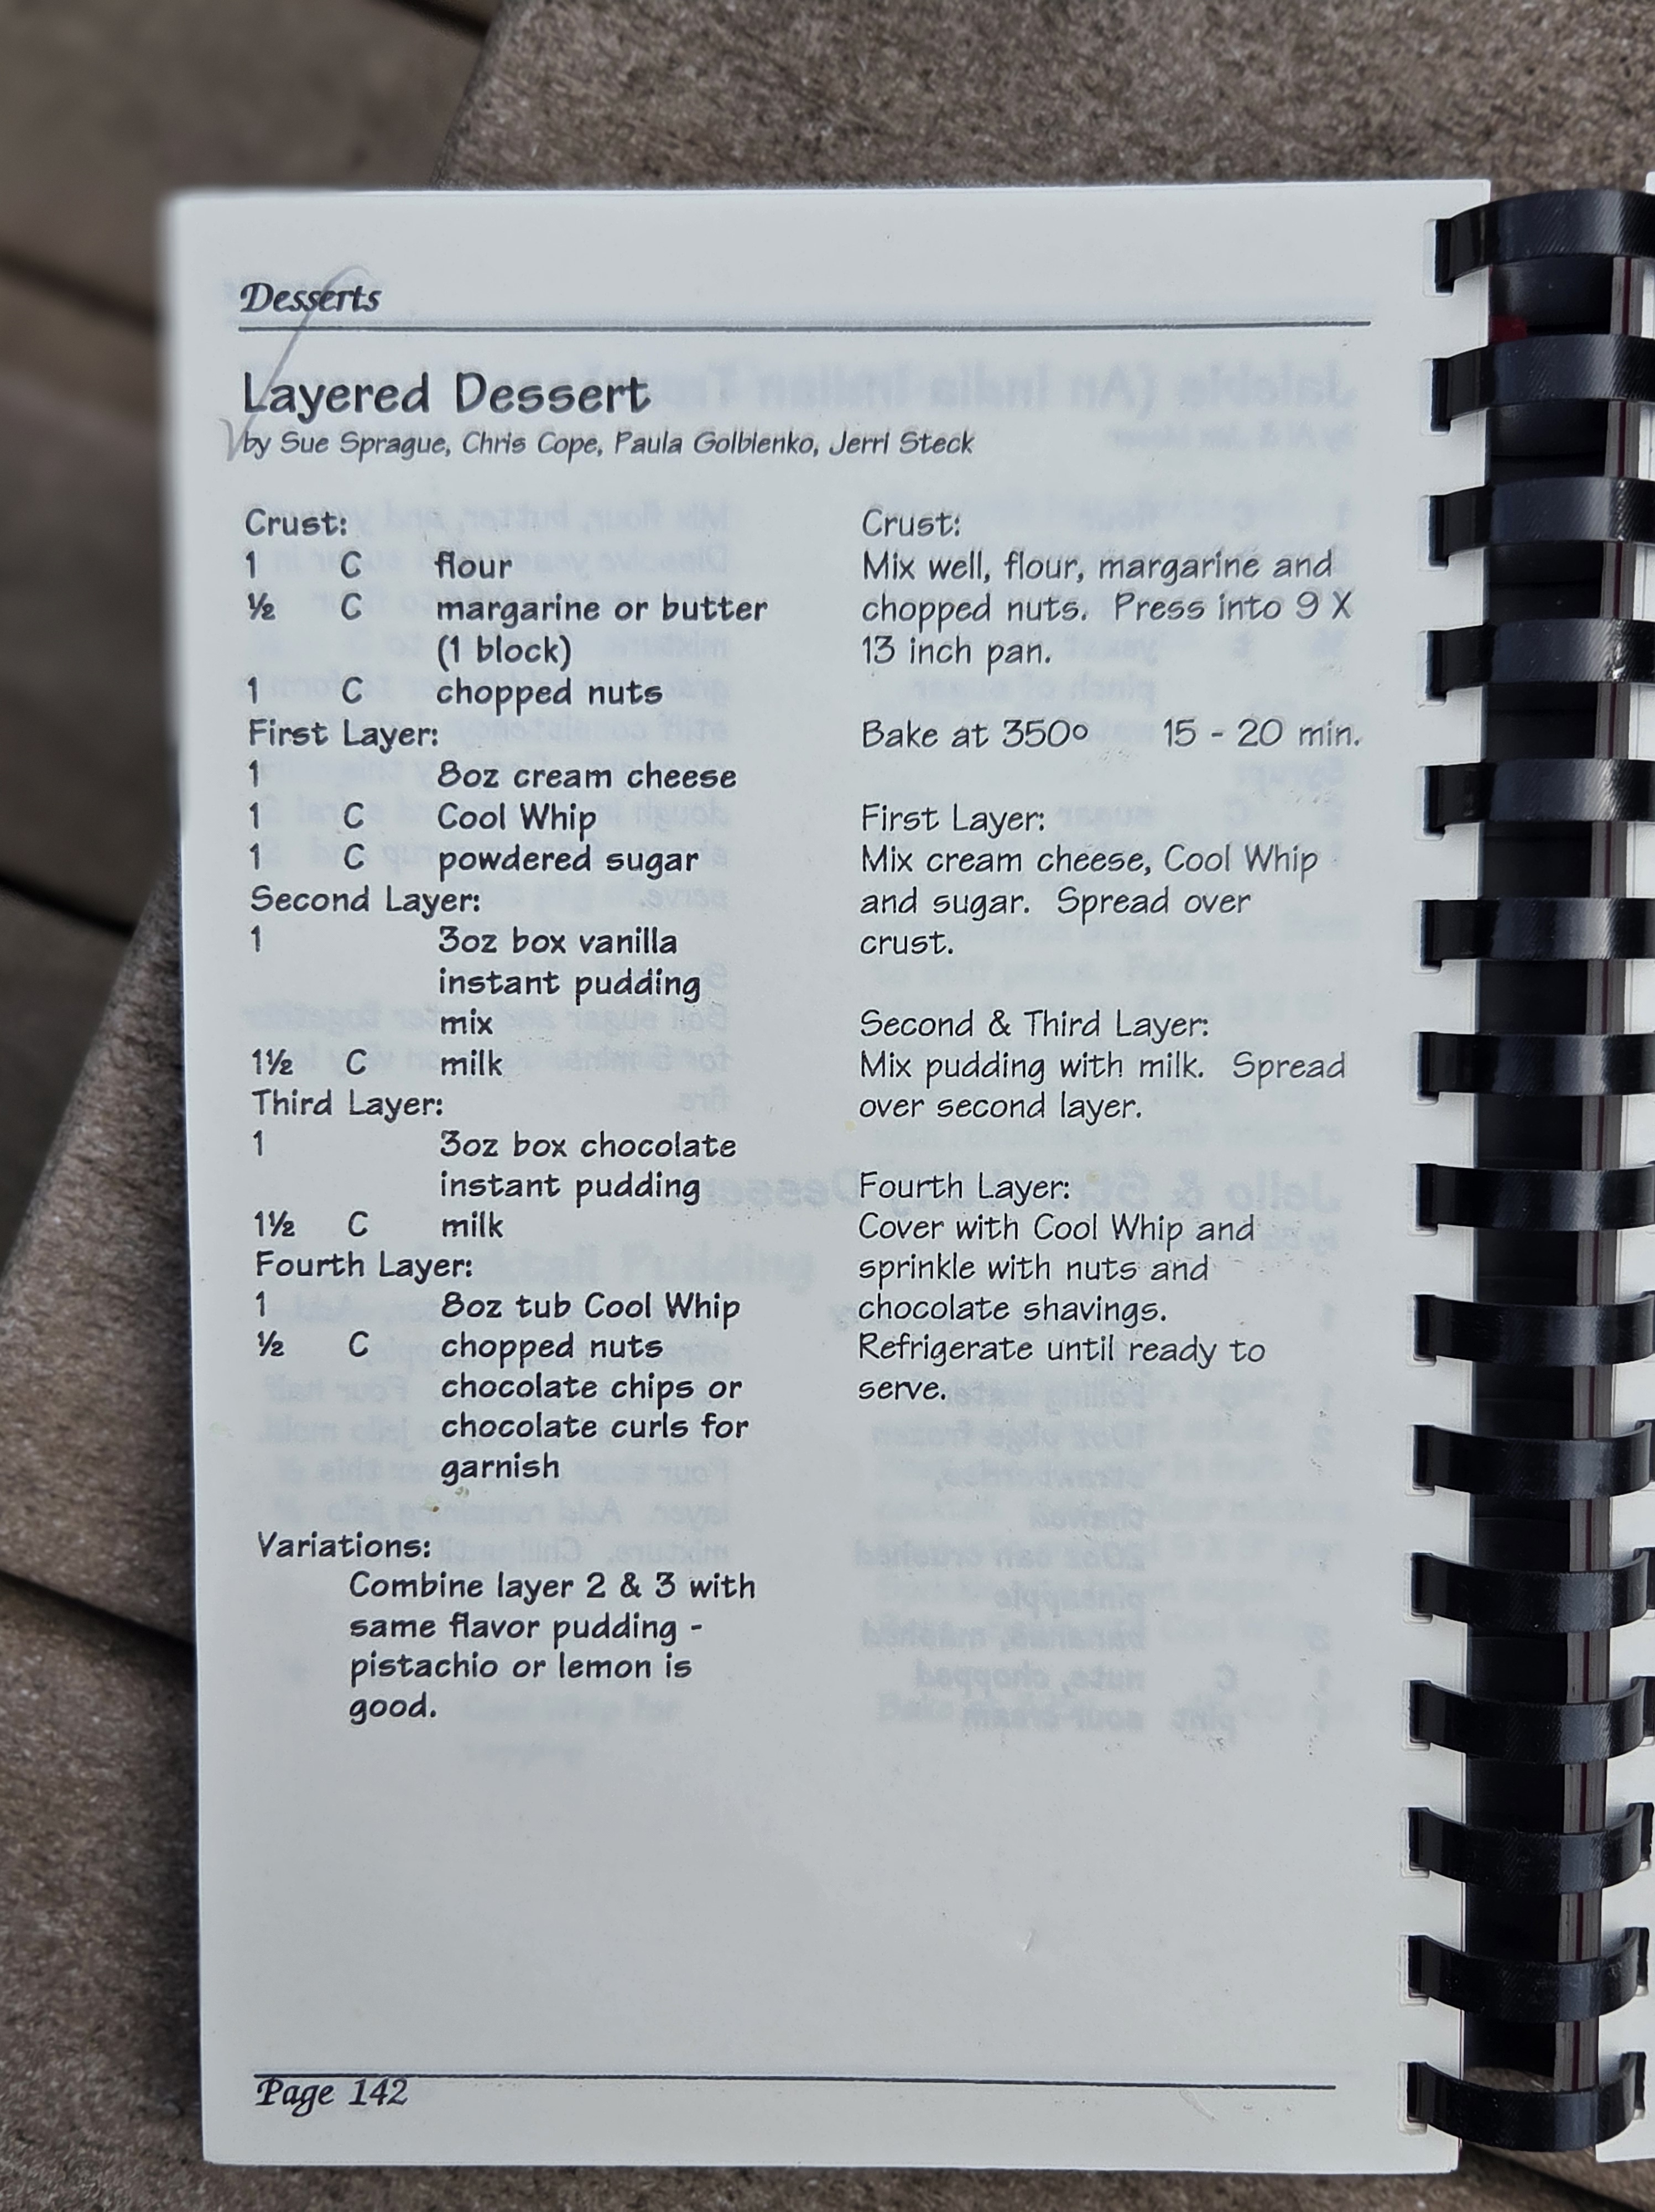 Desserts
Layered Dessert
by Sue Sprague, Chris Cope, Paula Golbienko, Jerri Steck
Crust:
1 C flour
½ C margarine or butter
(1 block)
1 C chopped nuts
First Layer:
1 8oz cream cheese
1 C Cool Whip
1 C powdered sugar
Second Layer:
1 3oz box vanilla
instant pudding
mix
1½ C milk
Third Layer:
1 3oz box chocolate
instant pudding
1½ C milk
Fourth Layer:
1 8oz tub Cool Whip
½ C chopped nuts
chocolate chips or
chocolate curls for
garnish
Variations:
Combine layer 2 & 3 with
same flavor pudding -
pistachio or lemon is
good.
Crust:
Mix well, flour, margarine and
chopped nuts. Press into 9 X
13 inch pan.
Bake at 350° 15 - 20 min.
First Layer:
Mix cream cheese, Cool Whip
and sugar. Spread over
crust.
Second & Third Layer:
Mix pudding with milk. Spread
over second layer.
Fourth Layer:
Cover with Cool Whip and
sprinkle with nuts and
chocolate shavings.
Refrigerate until ready to
serve.
Page 142